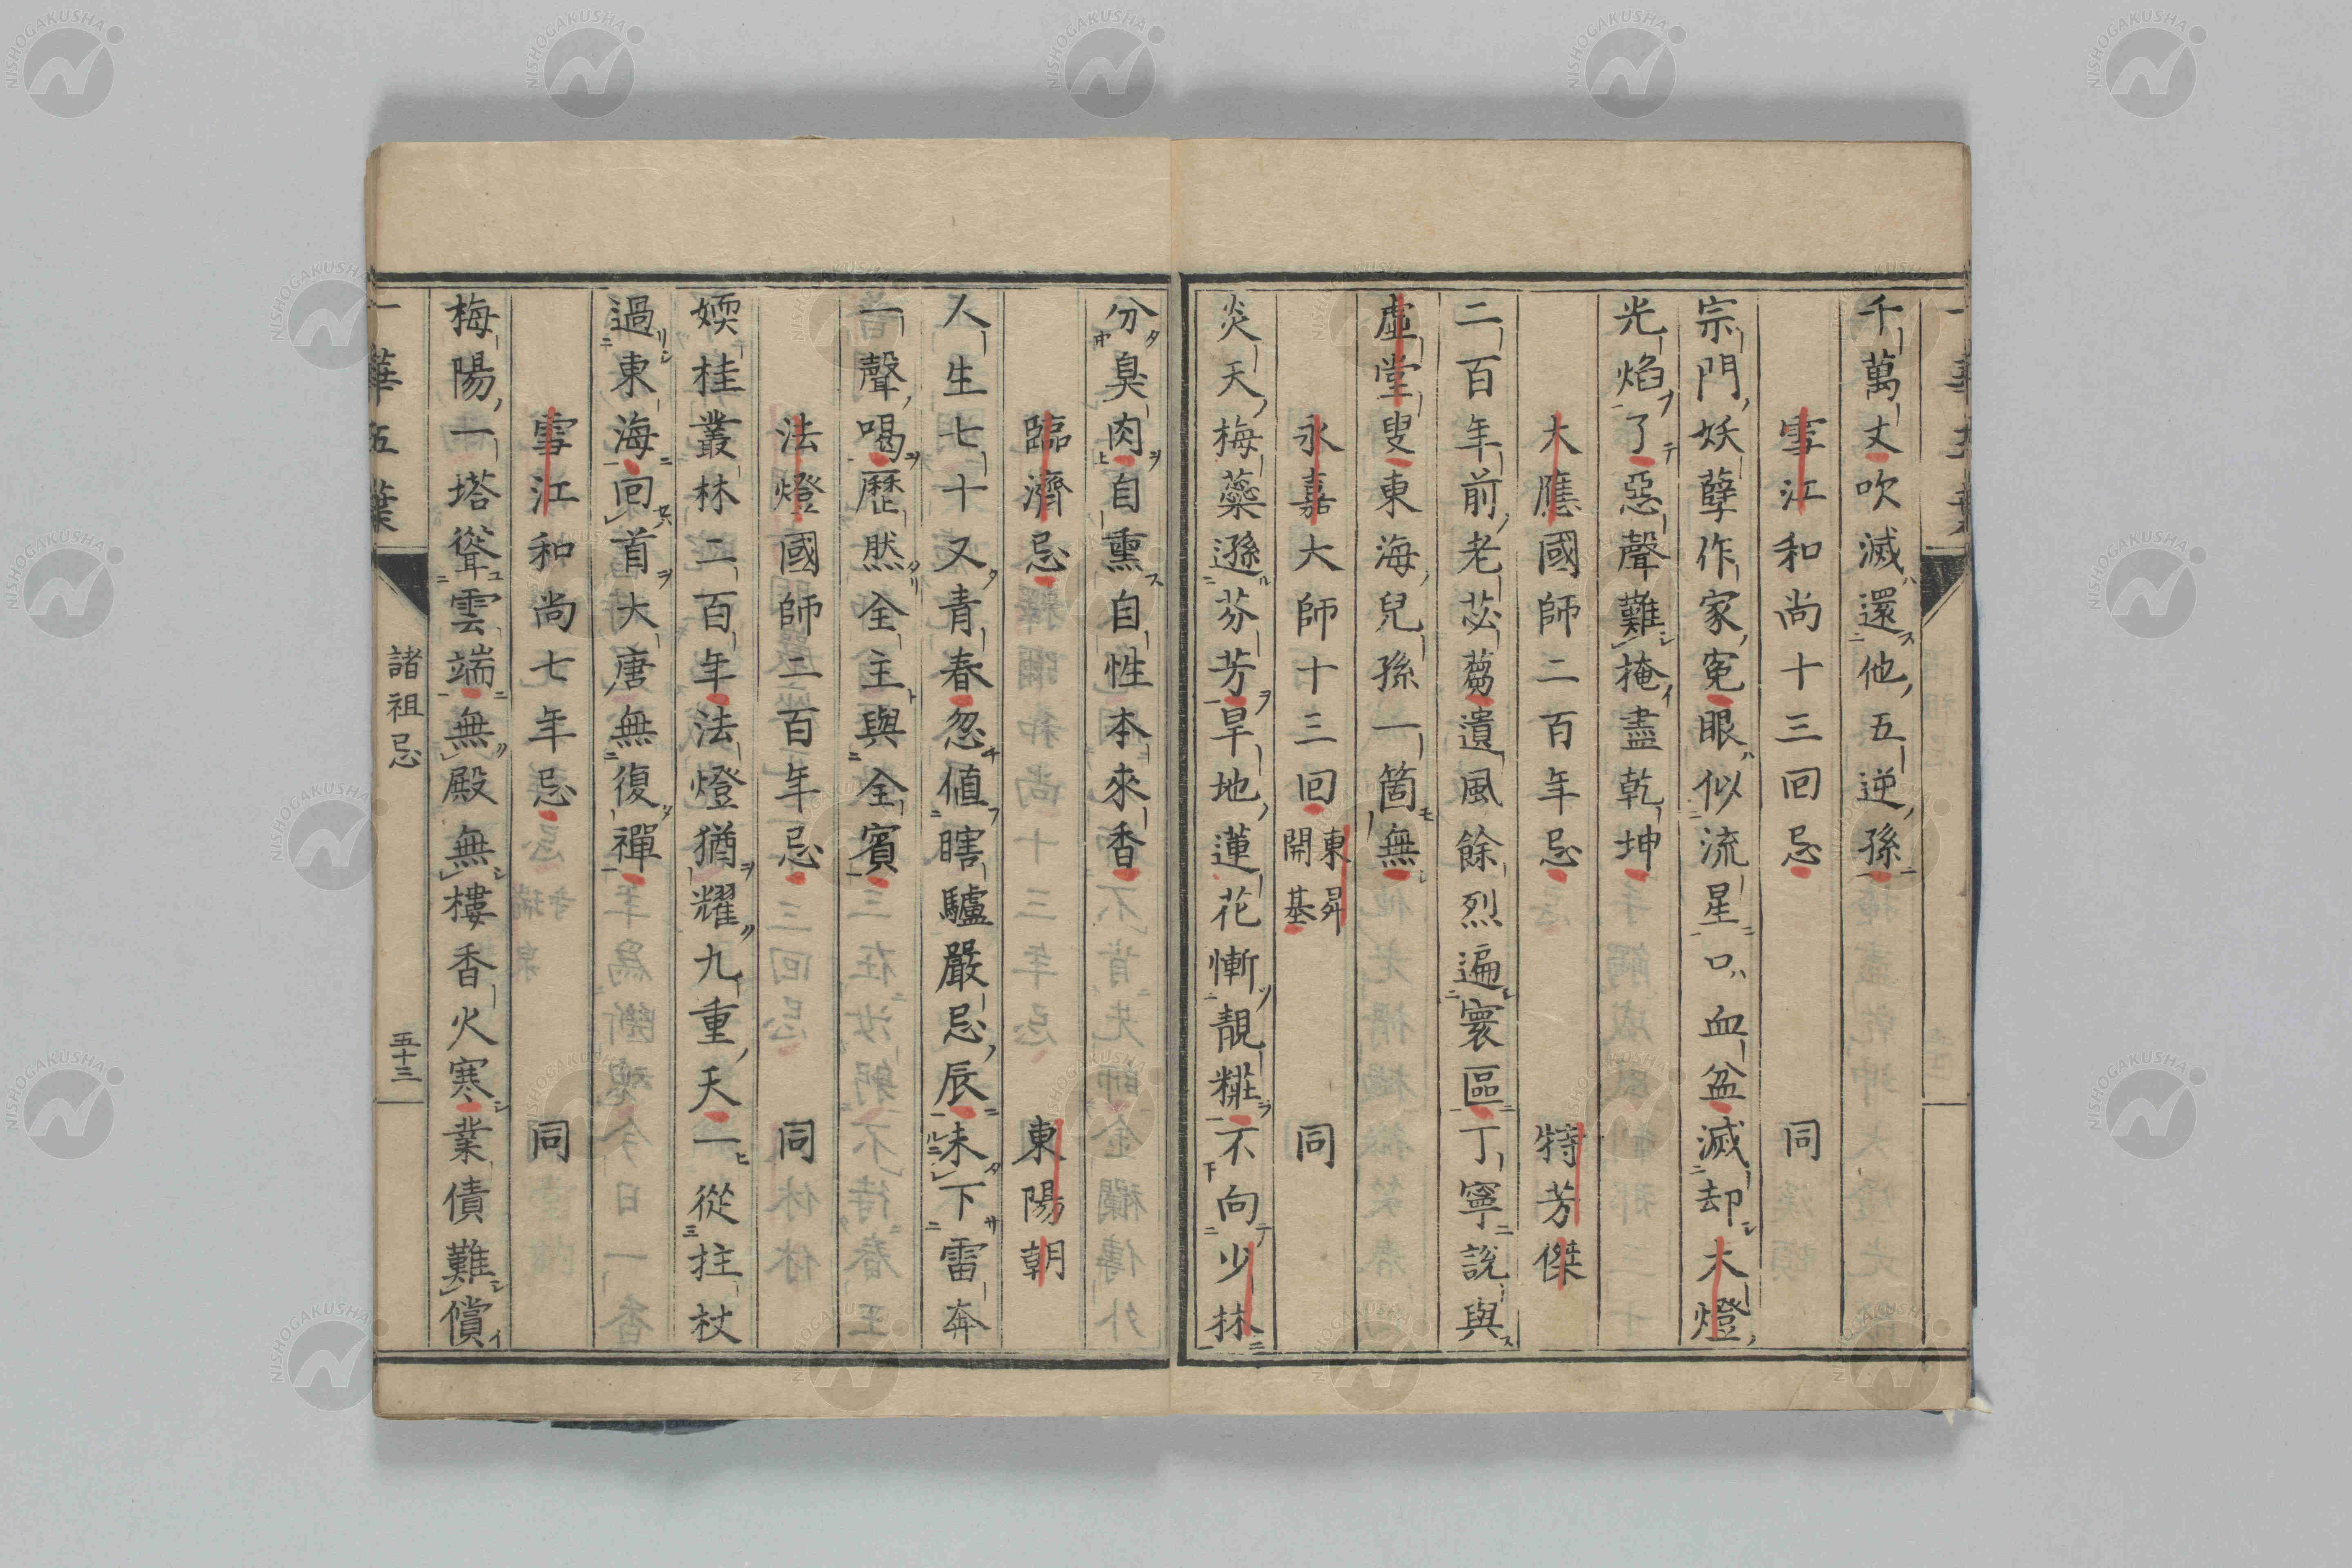 千萬丈吹滅還他五逆孫
雪江和尚十三回忌　同
宗門妖孽作家寃眼似流星口血盆滅却大燈
光焰了惡聲難掩盡乾坤
大應國師二百年忌　特芳傑
二百年前老苾蒭遺風餘烈遍寰區丁寧說與
虛堂叟東海兒孫一箇無
永嘉大師十三回東昇開基　同
炎天梅蘂遜芬芳旱地蓮花慚靚糚不向少林
分臭肉自熏自性本來香
臨濟忌　東陽朝
人生七十又青春忽値瞎驢嚴忌辰未下雷奔
一聲喝歷然全主與全賓
法燈國師二百年忌　同
婹桂叢林二百年法燈猶耀九重天一從拄杖
過東海回首大唐無復禪
雪江和尚七年忌　同
梅陽一塔聳雲端無殿無樓香火寒業債難償
一華五葉　諸祖忌　五十三
NISHOGAKUSHA